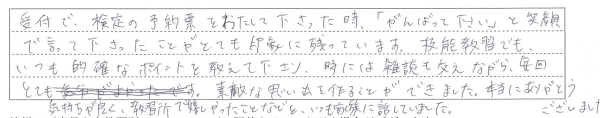 受付で、検定の予約票をわたして下さった時、「がんばって下さい」と笑顔
で言って下さったことがとても印象に残っています。技能教習でも、
いつも的確なポイントを教えて下さり、時には雑談も交えながら、毎回
とても 素敵な思い出を作ることができました。本当にありがとう
気持ちが良く、教習所で嬉しかったことなどを、いつも家族に話していました。 ございました